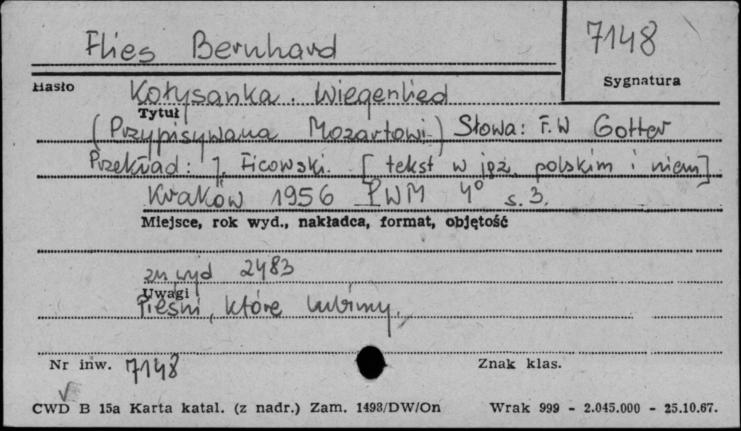 Flies Bernhard
7148
Hasło
Sygnatura
Kołysanka. Wiegenlied
Tytuł
(Przypisywana Mozartowi) Słowa: F.W Gotter
Przekład: J. Ficowski. [tekst w jęz. polskim i niem]
Kraków 1956 PWM 4° s. 3.
Miejsce, rok wyd., nakładca, format, objętość
zn wyd 2483
Uwagi
Pieśni, które lubimy.
Nr inw. 7148
Znak klas.
CWD B 15a Karta katal. (z nadr.) Zam. 1493/DW/On
Wrak 999 - 2.045.000 - 25.10.67.